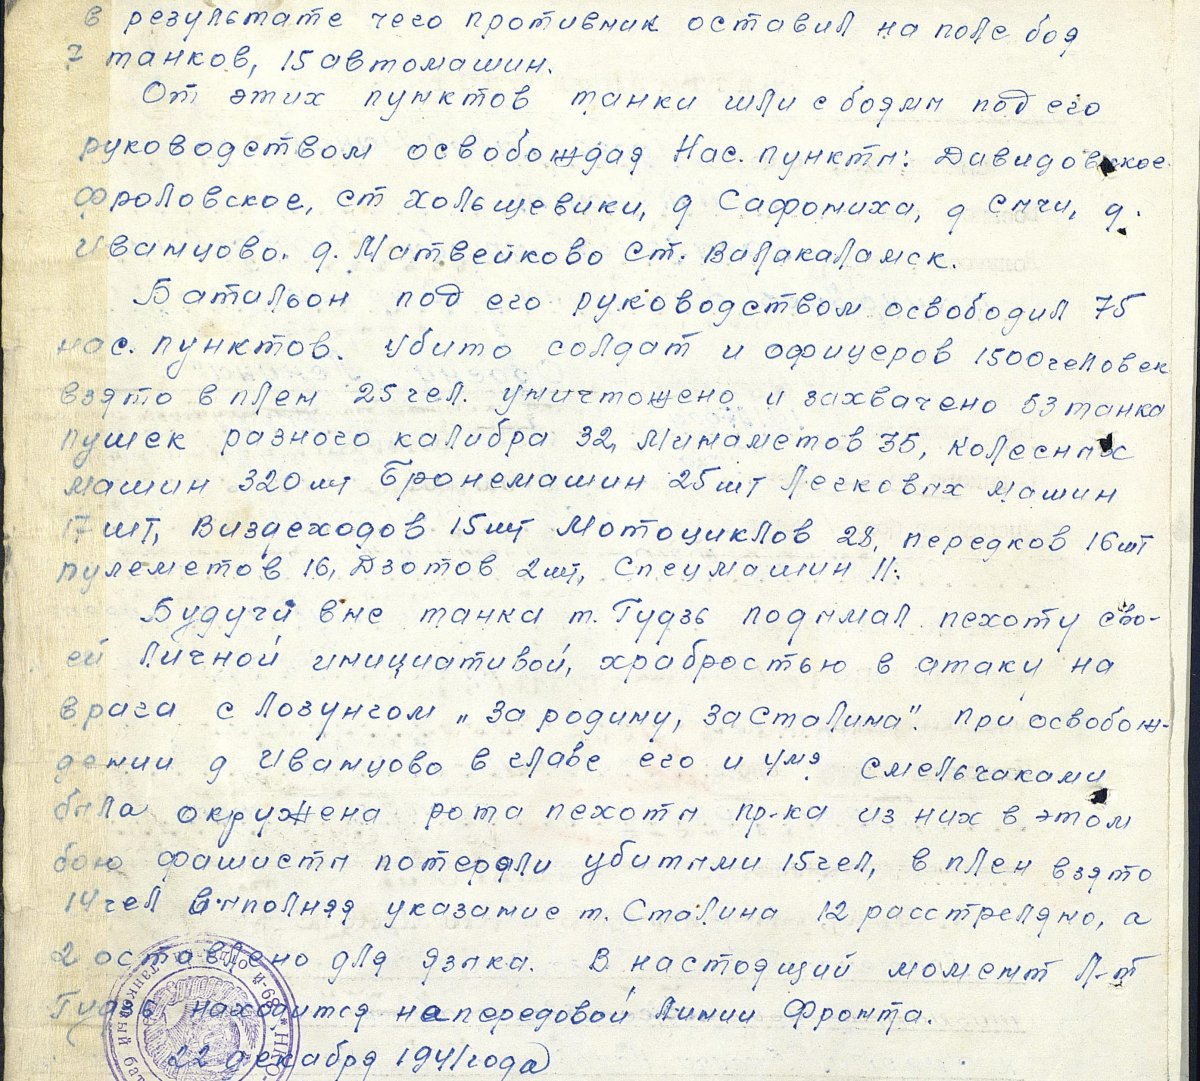 в результате чего противник оставил на поле боя
7 танков, 15 автомашин.
От этих пунктов танки шли с боямы под его
руководством освобождая Нас. пункты: Давидовское
Фроловское, ст Хольщевики, д Сафониха, д Сычи, д.
Иванцово. д. Матвейково Ст. Валакаламск.
Батильон под его руководством освободил 75
нас. пунктов. Убито солдат и офицеров 1500 человек
взято в плен 25 чел. уничтожено и захвачено 53 танка
пушек разного калибра 32, Минаметов 35, колесных
машин 320 шт Бронемашин 25 шт Легковых машин
17 шт, Виздеходов 15 шт Мотоциклов 28, передков 16 шт
пулеметов 16, Дзотов 2 шт, Спецмашин 11.
Будучи вне танка т. Гудзь подымал пехоту сво-
ей личной инициативой, храбростью в атаку на
врага с лозунгом „За родину, за Сталина". При освобож-
дении д Иванцово в главе его и умя смельчаками
была окружена рота пехоты пр-ка из них в этом
бою фашисты потеряли убитыми 15 чел, в плен взято
14 чел выполняя указание т. Сталина 12 расстреляно, а
2 оставлено для языка. В настоящий момент Л-т
Гудзь находится на передовой линии Фронта.
22 декабря 1941 года